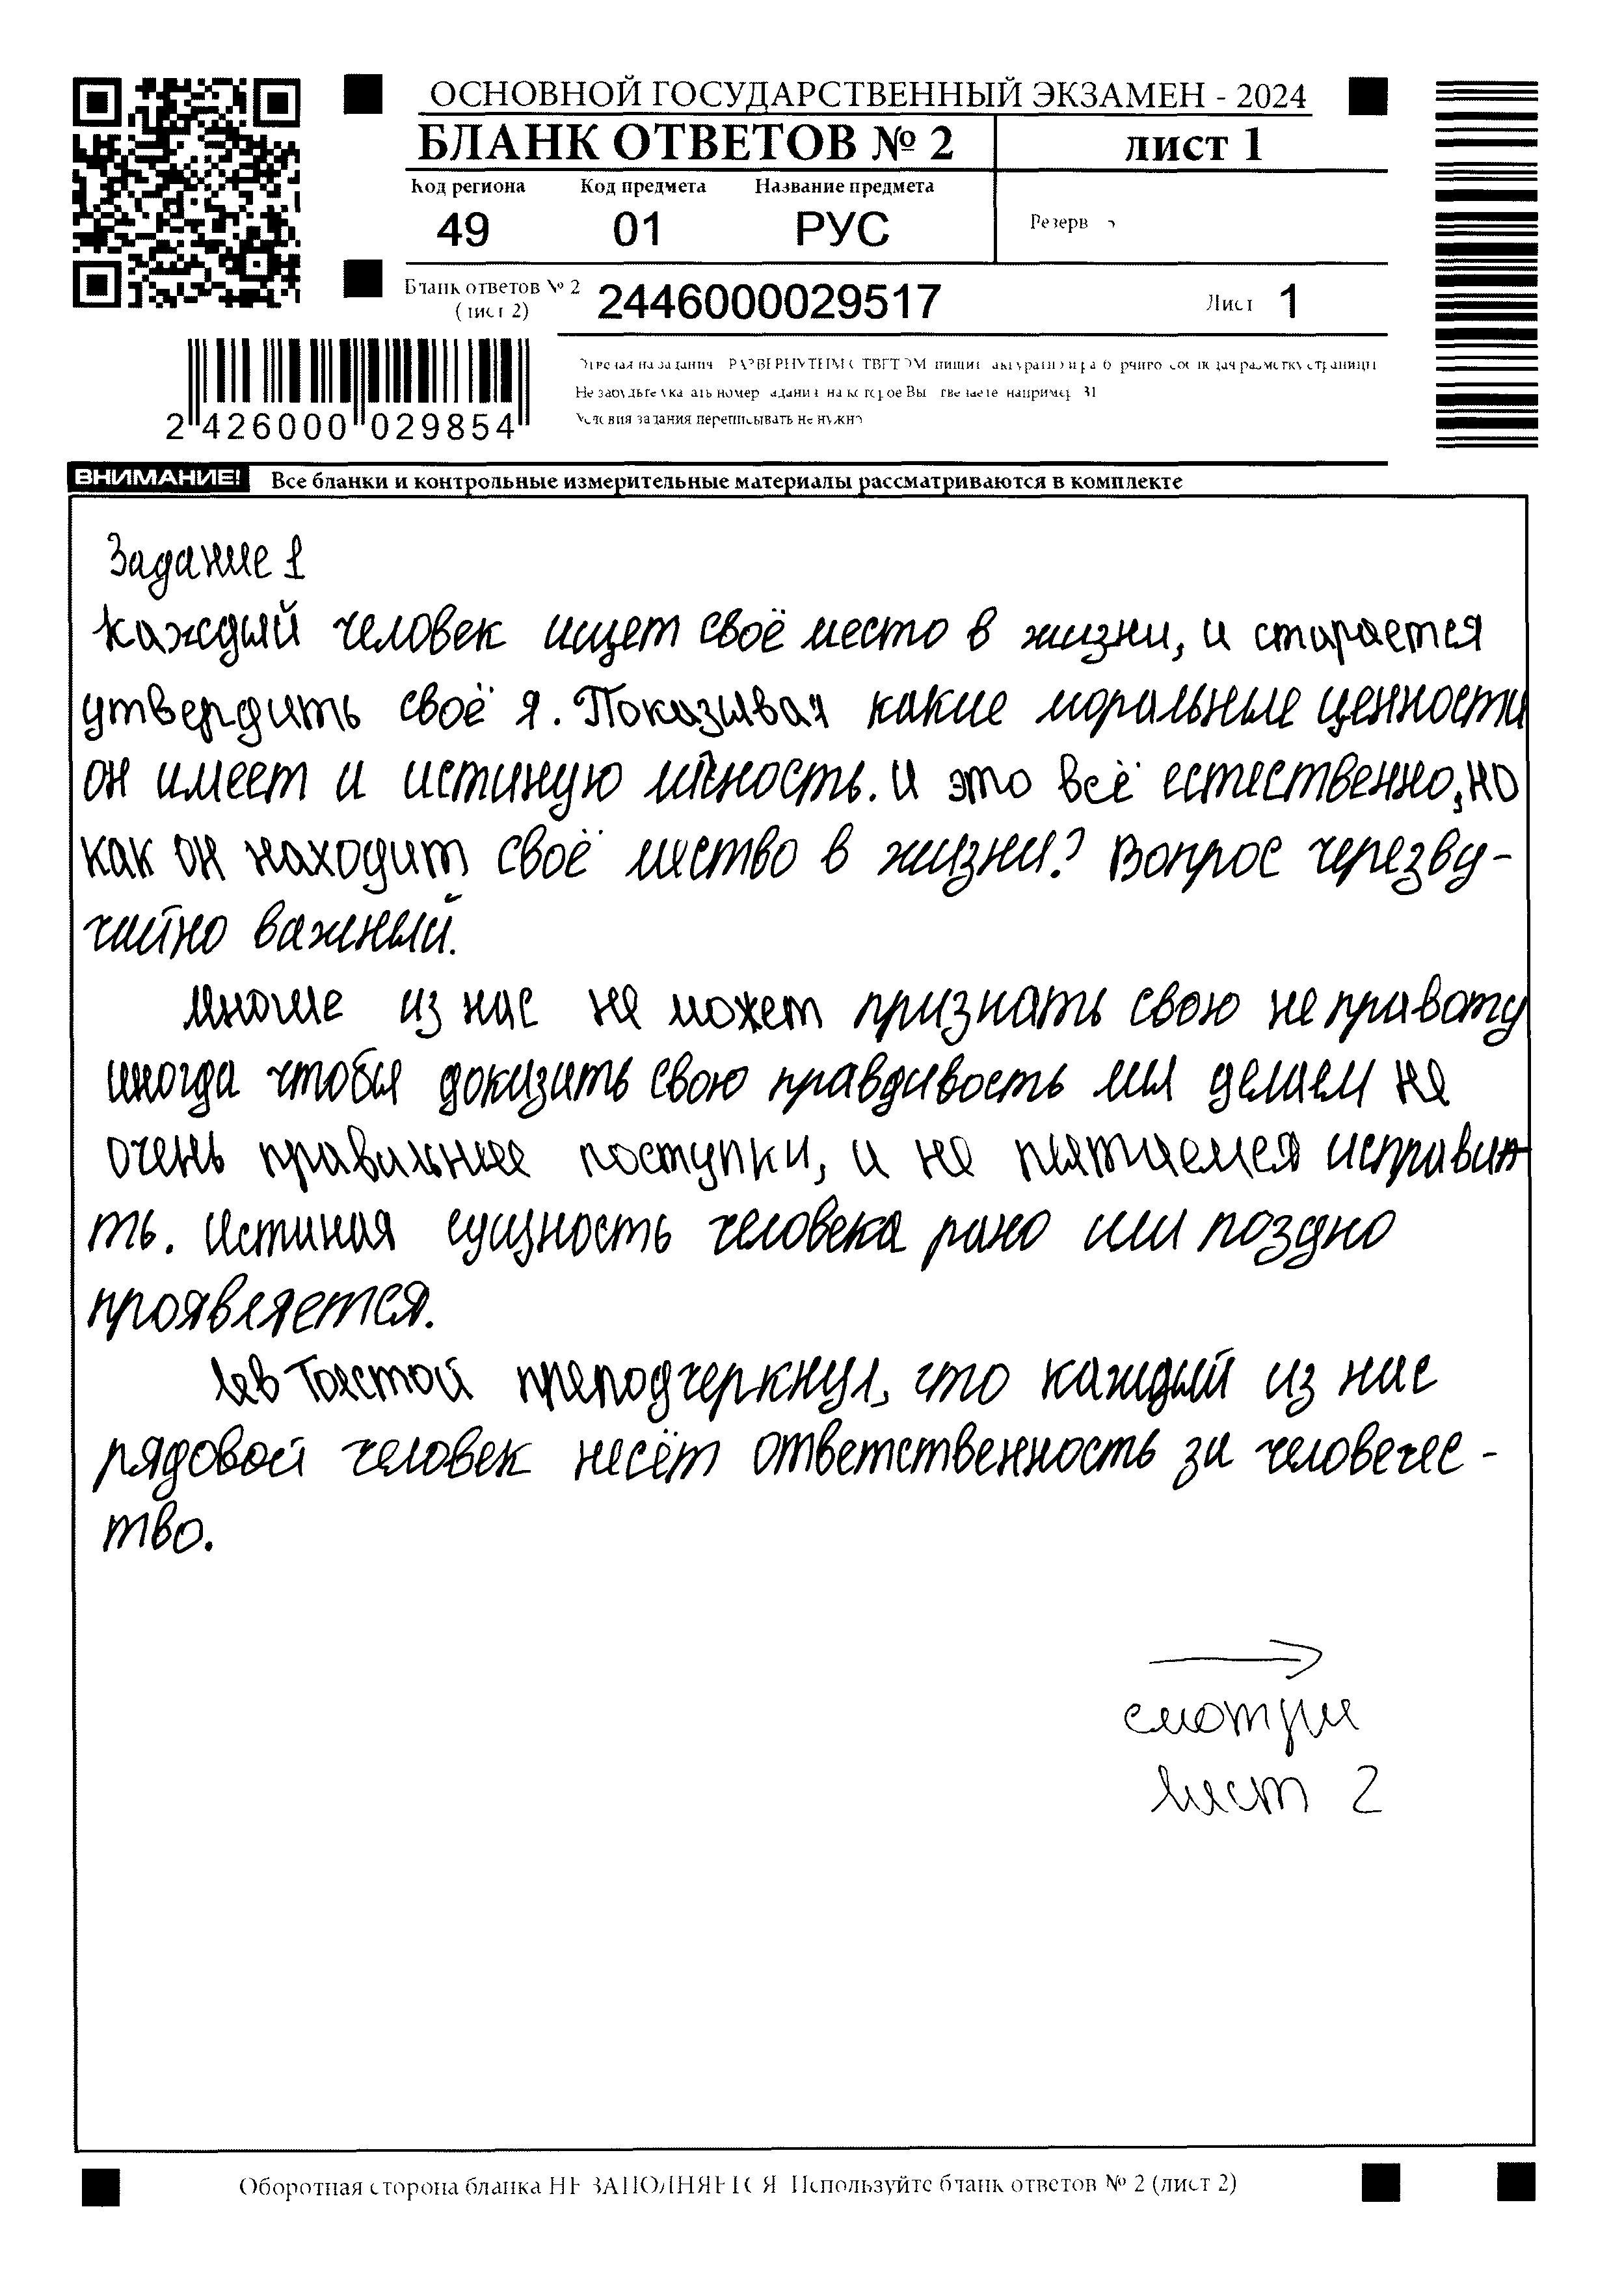 ОСНОВНОЙ ГОСУДАРСТВЕННЫЙ ЭКЗАМЕН - 2024
БЛАНК ОТВЕТОВ № 2
лист 1
Код региона Код предмета Название предмета
49 01 РУС
Резерв
Бланк ответов № 2
(лист 2)
2446000029517
Лист 1
2 426000 029854
Условия задания переписывать не нужно
ВНИМАНИЕ! Все бланки и контрольные измерительные материалы рассматриваются в комплекте
Задание 1
Каждый человек ищет своё место в жизни, и старается
утвердить своё я. Показывая какие моральные ценности
он имеет и истиную личность. И это всё естественно, но
как он находит своё место в жизни? Вопрос черезвы-
чайно важный.
Многие из нас не может признать свою не правоту
иногда чтобы доказать свою правдивость мы делаем не
очень правильные поступки, и не пытаемся исправи
ть. Истиная сущность человека рано или поздно
проявляется.
Лев Толстой преподчеркнул, что каждый из нас
рядовой человек несёт ответственность за человечес-
тво.
смотри
лист 2
Оборотная сторона бланка НЕ ЗАПОЛНЯЕТСЯ Используйте бланк ответов № 2 (лист 2)